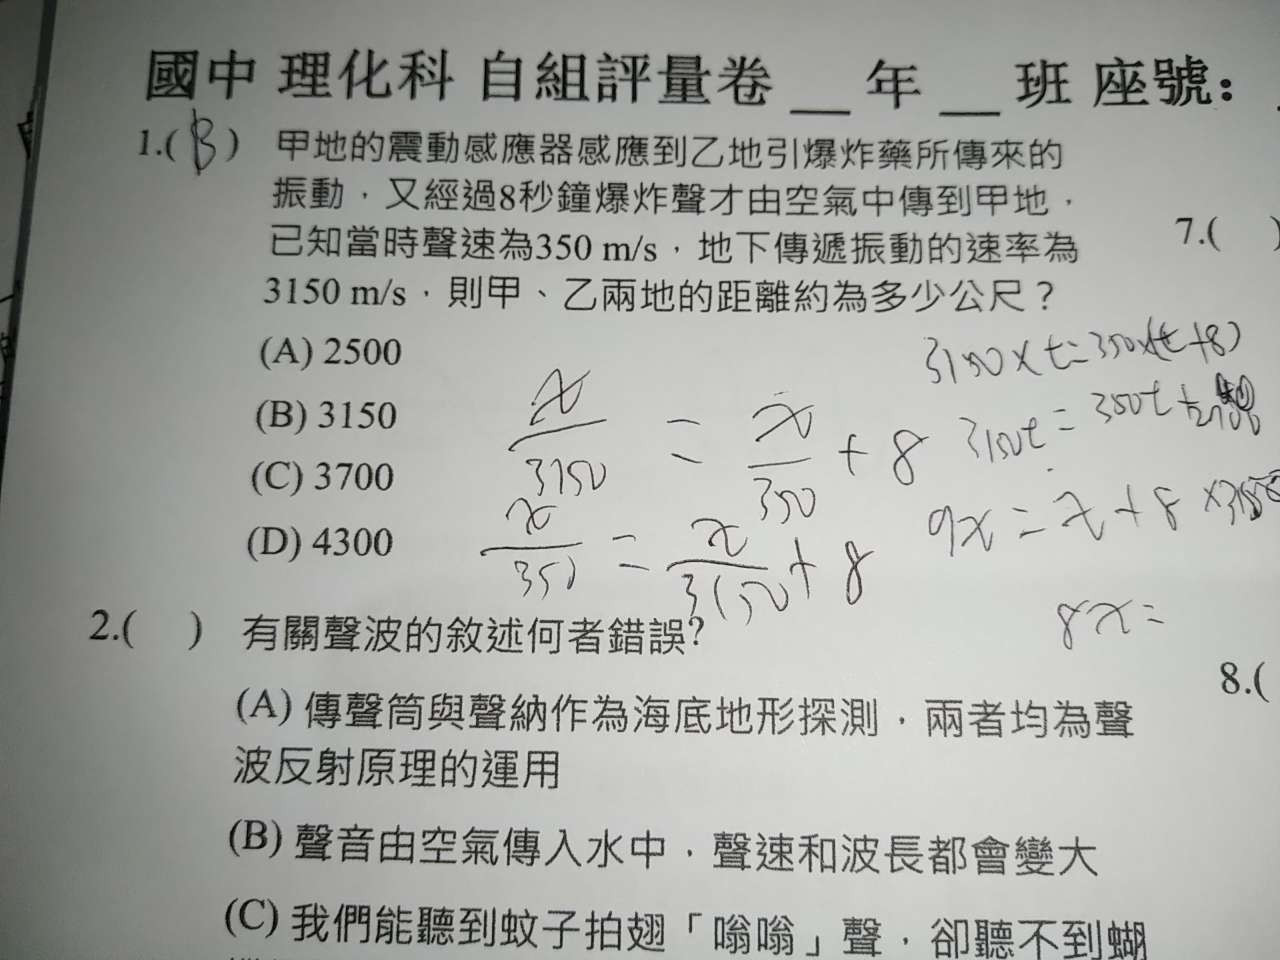 國中 理化科 自組評量卷 __ 年 __ 班 座號:
1.( B ) 甲地的震動感應器感應到乙地引爆炸藥所傳來的
振動，又經過8秒鐘爆炸聲才由空氣中傳到甲地，
已知當時聲速為350 m/s，地下傳遞振動的速率為
3150 m/s，則甲、乙兩地的距離約為多少公尺？
(A) 2500
(B) 3150
(C) 3700
(D) 4300
x/3150 = x/350 + 8
x/350 = x/3150 + 8
3150×t=350×(t+8)
3150t = 350t +
9x = x + 8 ×3150
8x=
2.( ) 有關聲波的敘述何者錯誤?
(A) 傳聲筒與聲納作為海底地形探測，兩者均為聲
波反射原理的運用
(B) 聲音由空氣傳入水中，聲速和波長都會變大
(C) 我們能聽到蚊子拍翅「嗡嗡」聲，卻聽不到蝴
7.( )
8.(